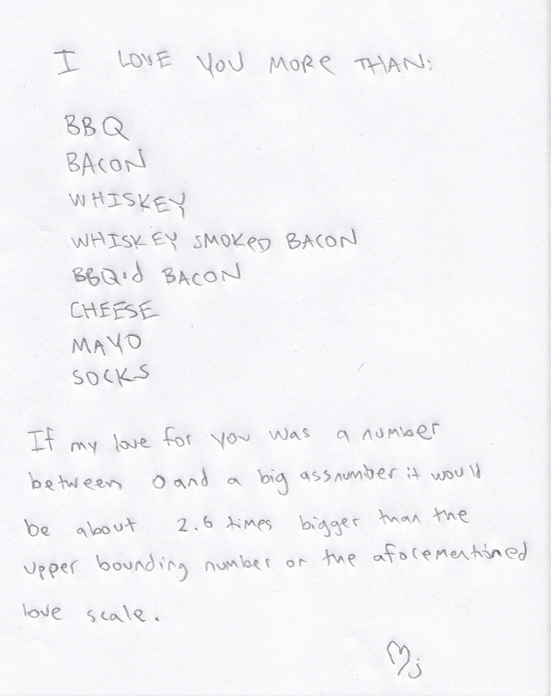 I LOVE YOU MORE THAN:
BBQ
BACON
WHISKEY
WHISKEY SMOKED BACON
BBQ'd BACON
CHEESE
MAYO
SOCKS
If my love for you was a number
between 0 and a big assnumber it would
be about 2.6 times bigger than the
upper bounding number on the aforementioned
love scale.
♡j